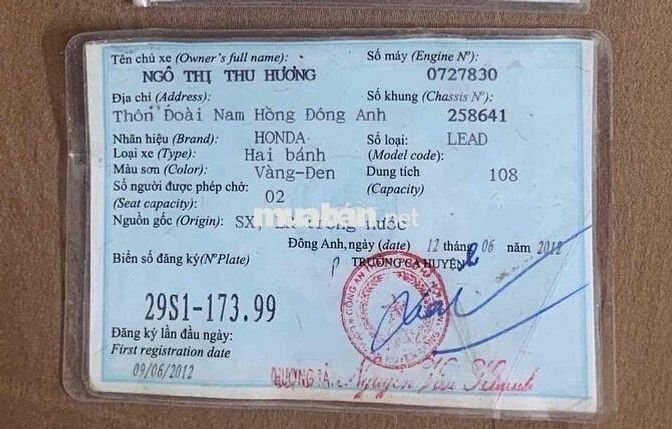 Tên chủ xe (Owner's full name):
NGÔ THỊ THU HƯƠNG
Số máy (Engine Nº):
0727830
Địa chỉ (Address):
Thôn Đoài Nam Hồng Đông Anh
Số khung (Chassis Nº):
258641
Nhãn hiệu (Brand): HONDA
Số loại: LEAD
(Model code):
Loại xe (Type): Hai bánh
Màu sơn (Color): Vàng-Đen
Dung tích 108
(Capacity)
Số người được phép chở: 02
(Seat capacity):
Nguồn gốc (Origin): SX, LR trong nước
muaban.net
Đông Anh, ngày (date) 12 tháng 06 năm 2012
Biển số đăng ký (Nº Plate)
TRƯỞNG CA HUYỆN
29S1-173.99
Đăng ký lần đầu ngày:
First registration date
09/06/2012
CÔNG AN
THƯỢNG TÁ. Nguyễn Văn